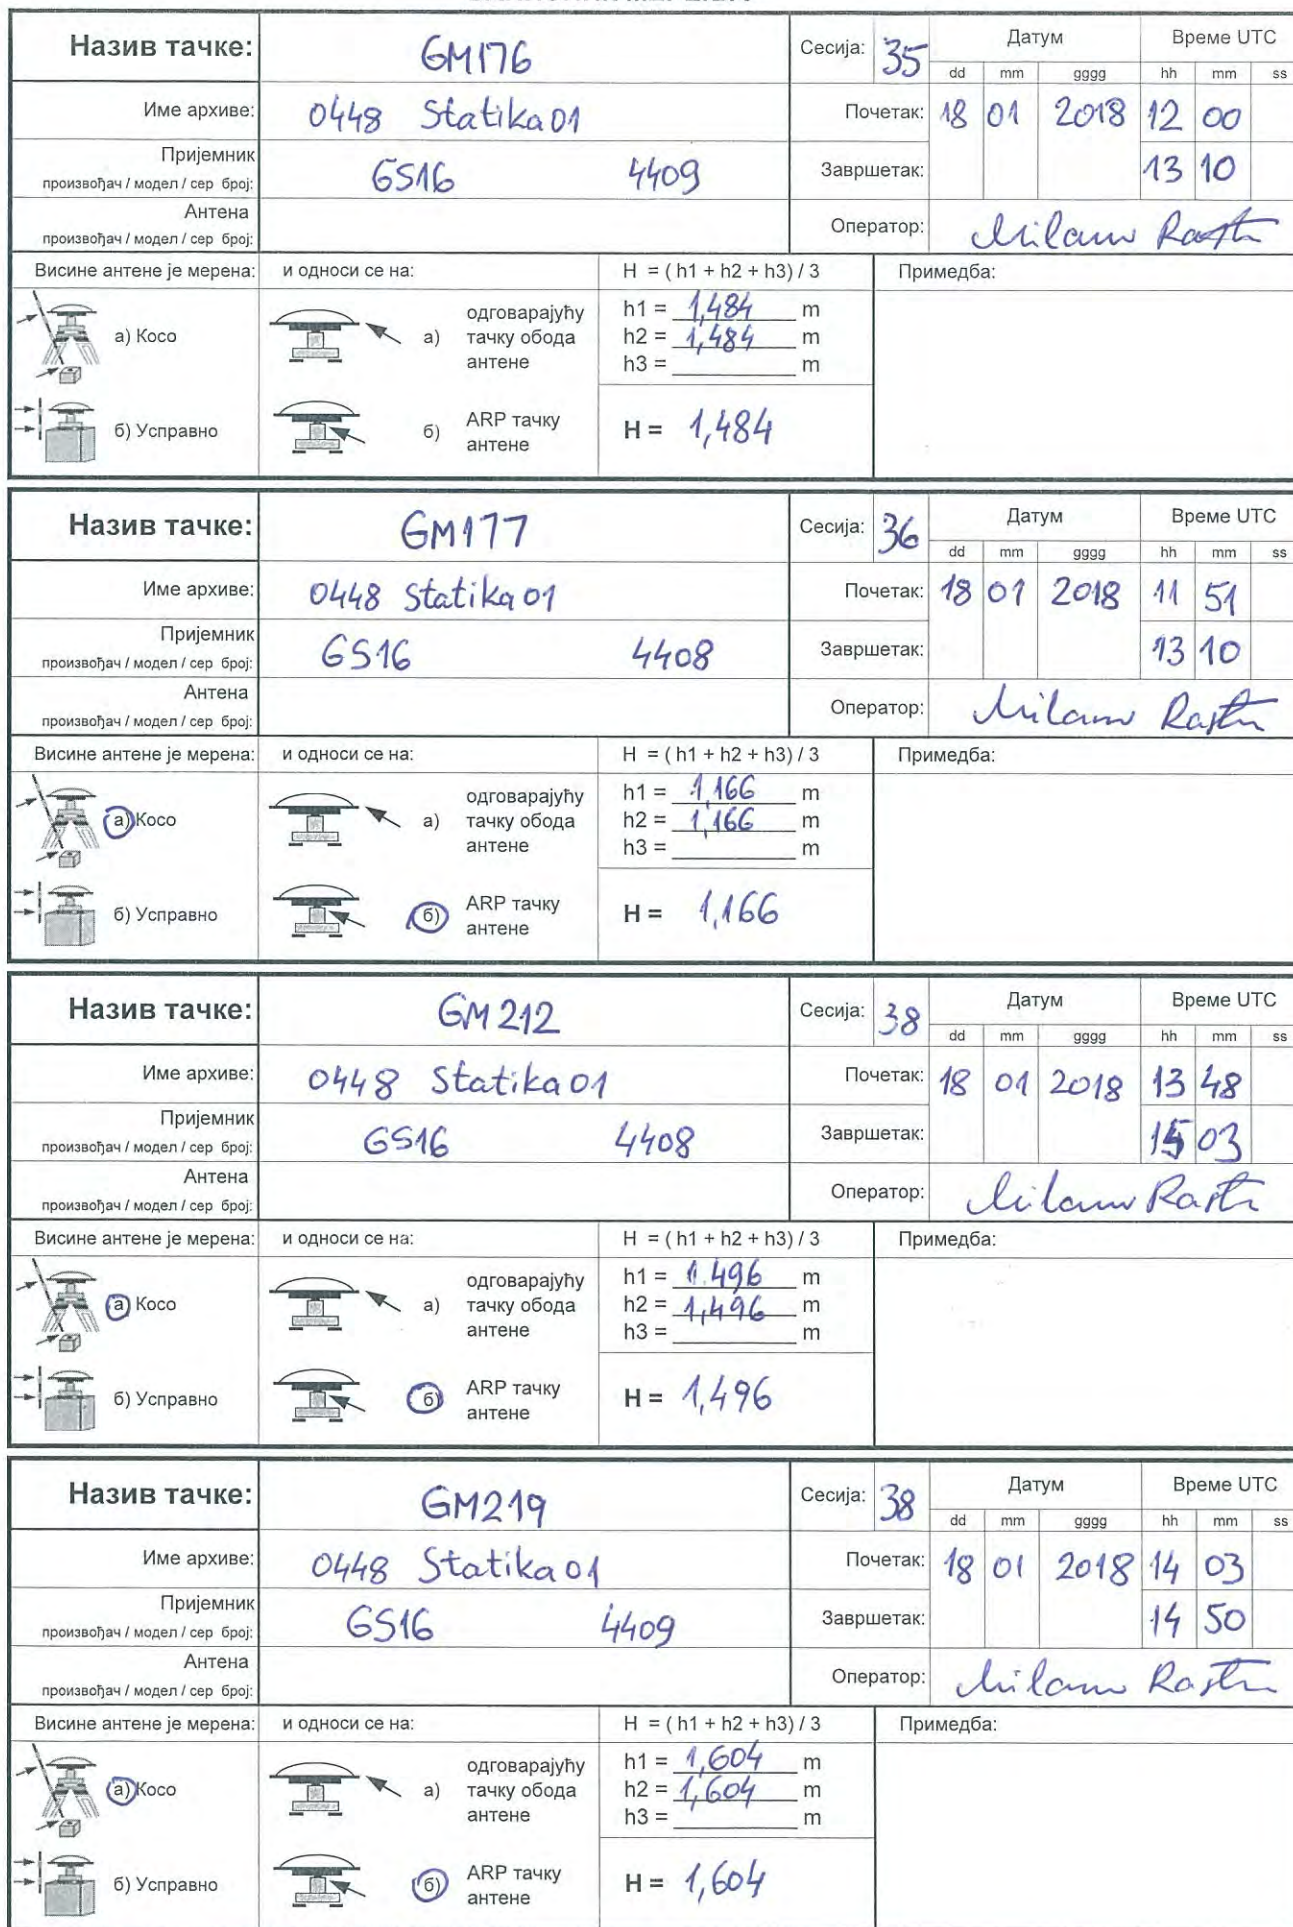 Назив тачке: GM176 Сесија: 35 Датум Време UTC
dd mm gggg hh mm ss
Име архиве: 0448 Statika 01 Почетак: 18 01 2018 12 00
Пријемник
произвођач / модел / сер број: GS16 4409 Завршетак: 13 10
Антена
произвођач / модел / сер број: Оператор: Milan
Висине антене је мерена: и односи се на: H = ( h1 + h2 + h3 ) / 3 Примедба:
а) Косо а) одговарајућу тачку обода антене
h1 = 1,484 m
h2 = 1,484 m
h3 = m
б) Усправно б) ARP тачку антене H = 1,484
Назив тачке: GM177 Сесија: 36 Датум Време UTC
dd mm gggg hh mm ss
Име архиве: 0448 Statika 01 Почетак: 18 01 2018 11 51
Пријемник
произвођач / модел / сер број: GS16 4408 Завршетак: 13 10
Антена
произвођач / модел / сер број: Оператор: Milan
Висине антене је мерена: и односи се на: H = ( h1 + h2 + h3 ) / 3 Примедба:
а) Косо а) одговарајућу тачку обода антене
h1 = 1,166 m
h2 = 1,166 m
h3 = m
б) Усправно б) ARP тачку антене H = 1,166
Назив тачке: GM 212 Сесија: 38 Датум Време UTC
dd mm gggg hh mm ss
Име архиве: 0448 Statika 01 Почетак: 18 01 2018 13 48
Пријемник
произвођач / модел / сер број: GS16 4408 Завршетак: 15 03
Антена
произвођач / модел / сер број: Оператор: Milan
Висине антене је мерена: и односи се на: H = ( h1 + h2 + h3 ) / 3 Примедба:
а) Косо а) одговарајућу тачку обода антене
h1 = 1.496 m
h2 = 1,496 m
h3 = m
б) Усправно б) ARP тачку антене H = 1,496
Назив тачке: GM219 Сесија: 38 Датум Време UTC
dd mm gggg hh mm ss
Име архиве: 0448 Statika 01 Почетак: 18 01 2018 14 03
Пријемник
произвођач / модел / сер број: GS16 4409 Завршетак: 14 50
Антена
произвођач / модел / сер број: Оператор: Milan
Висине антене је мерена: и односи се на: H = ( h1 + h2 + h3 ) / 3 Примедба:
а) Косо а) одговарајућу тачку обода антене
h1 = 1,604 m
h2 = 1,604 m
h3 = m
б) Усправно б) ARP тачку антене H = 1,604